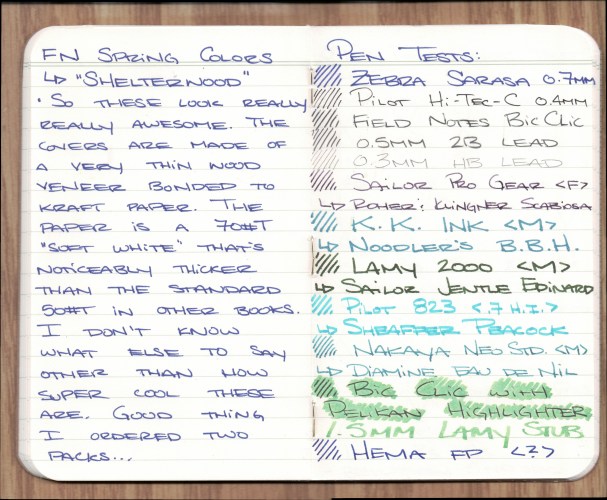 FN SPRING COLORS
↳ "SHELTERWOOD"
· SO THESE LOOK REALLY
REALLY AWESOME. THE
COVERS ARE MADE OF
A VERY THIN WOOD
VENEER BONDED TO
KRAFT PAPER. THE
PAPER IS A 70#T
"SOFT WHITE" THAT'S
NOTICEABLY THICKER
THAN THE STANDARD
50#T IN OTHER BOOKS.
I DON'T KNOW
WHAT ELSE TO SAY
OTHER THAN HOW
SUPER COOL THESE
ARE. GOOD THING
I ORDERED TWO
PACKS...
PEN TESTS:
ZEBRA SARASA 0.7MM
PILOT HI-TEC-C 0.4MM
FIELD NOTES BIC CLIC
0.5MM 2B LEAD
0.3MM HB LEAD
SAILOR PRO GEAR <F>
↳ ROHER & KLINGNER SCABIOSA
K.K. INK <M>
↳ NOODLER'S B.B.H.
LAMY 2000 <M>
↳ SAILOR JENTLE EPINARD
PILOT 823 <.7 H.I.>
↳ SHEAFFER PEACOCK
NAKAYA NEO STD. <M>
↳ DIAMINE EAU DE NIL
BIC CLIC WITH
PELIKAN HIGHLIGHTER
1.5MM LAMY STUB
HEMA FP <?>